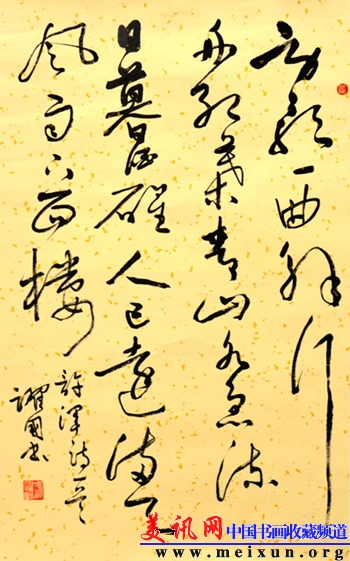 劳歌一曲解行
舟红葉青山水急流
日暮酒醒人已遠滿天
風雨下西樓
許渾詩一首
躍國书
美讯网 中国书画收藏频道
www.meixun.org